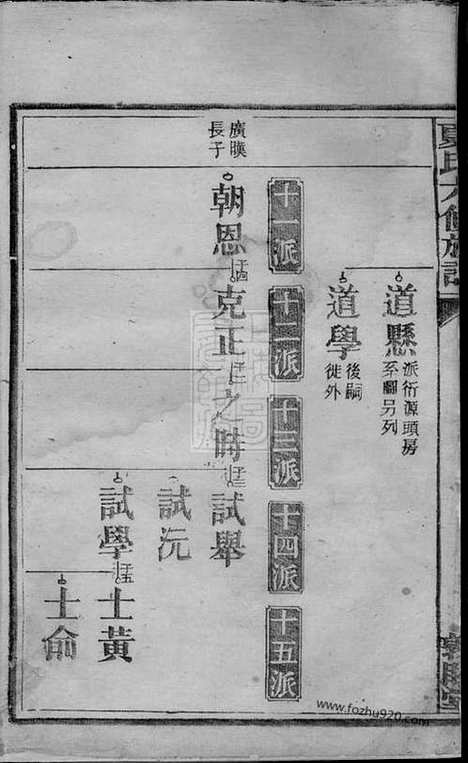 道縣 派衍源頭房系圖另列
道學 後嗣徙外
十一派
十二派
十三派
十四派
十五派
廣暎長子
朝恩
克正
之時
試舉
試沅
試學
士黃
士俞
www.fozhu920.com